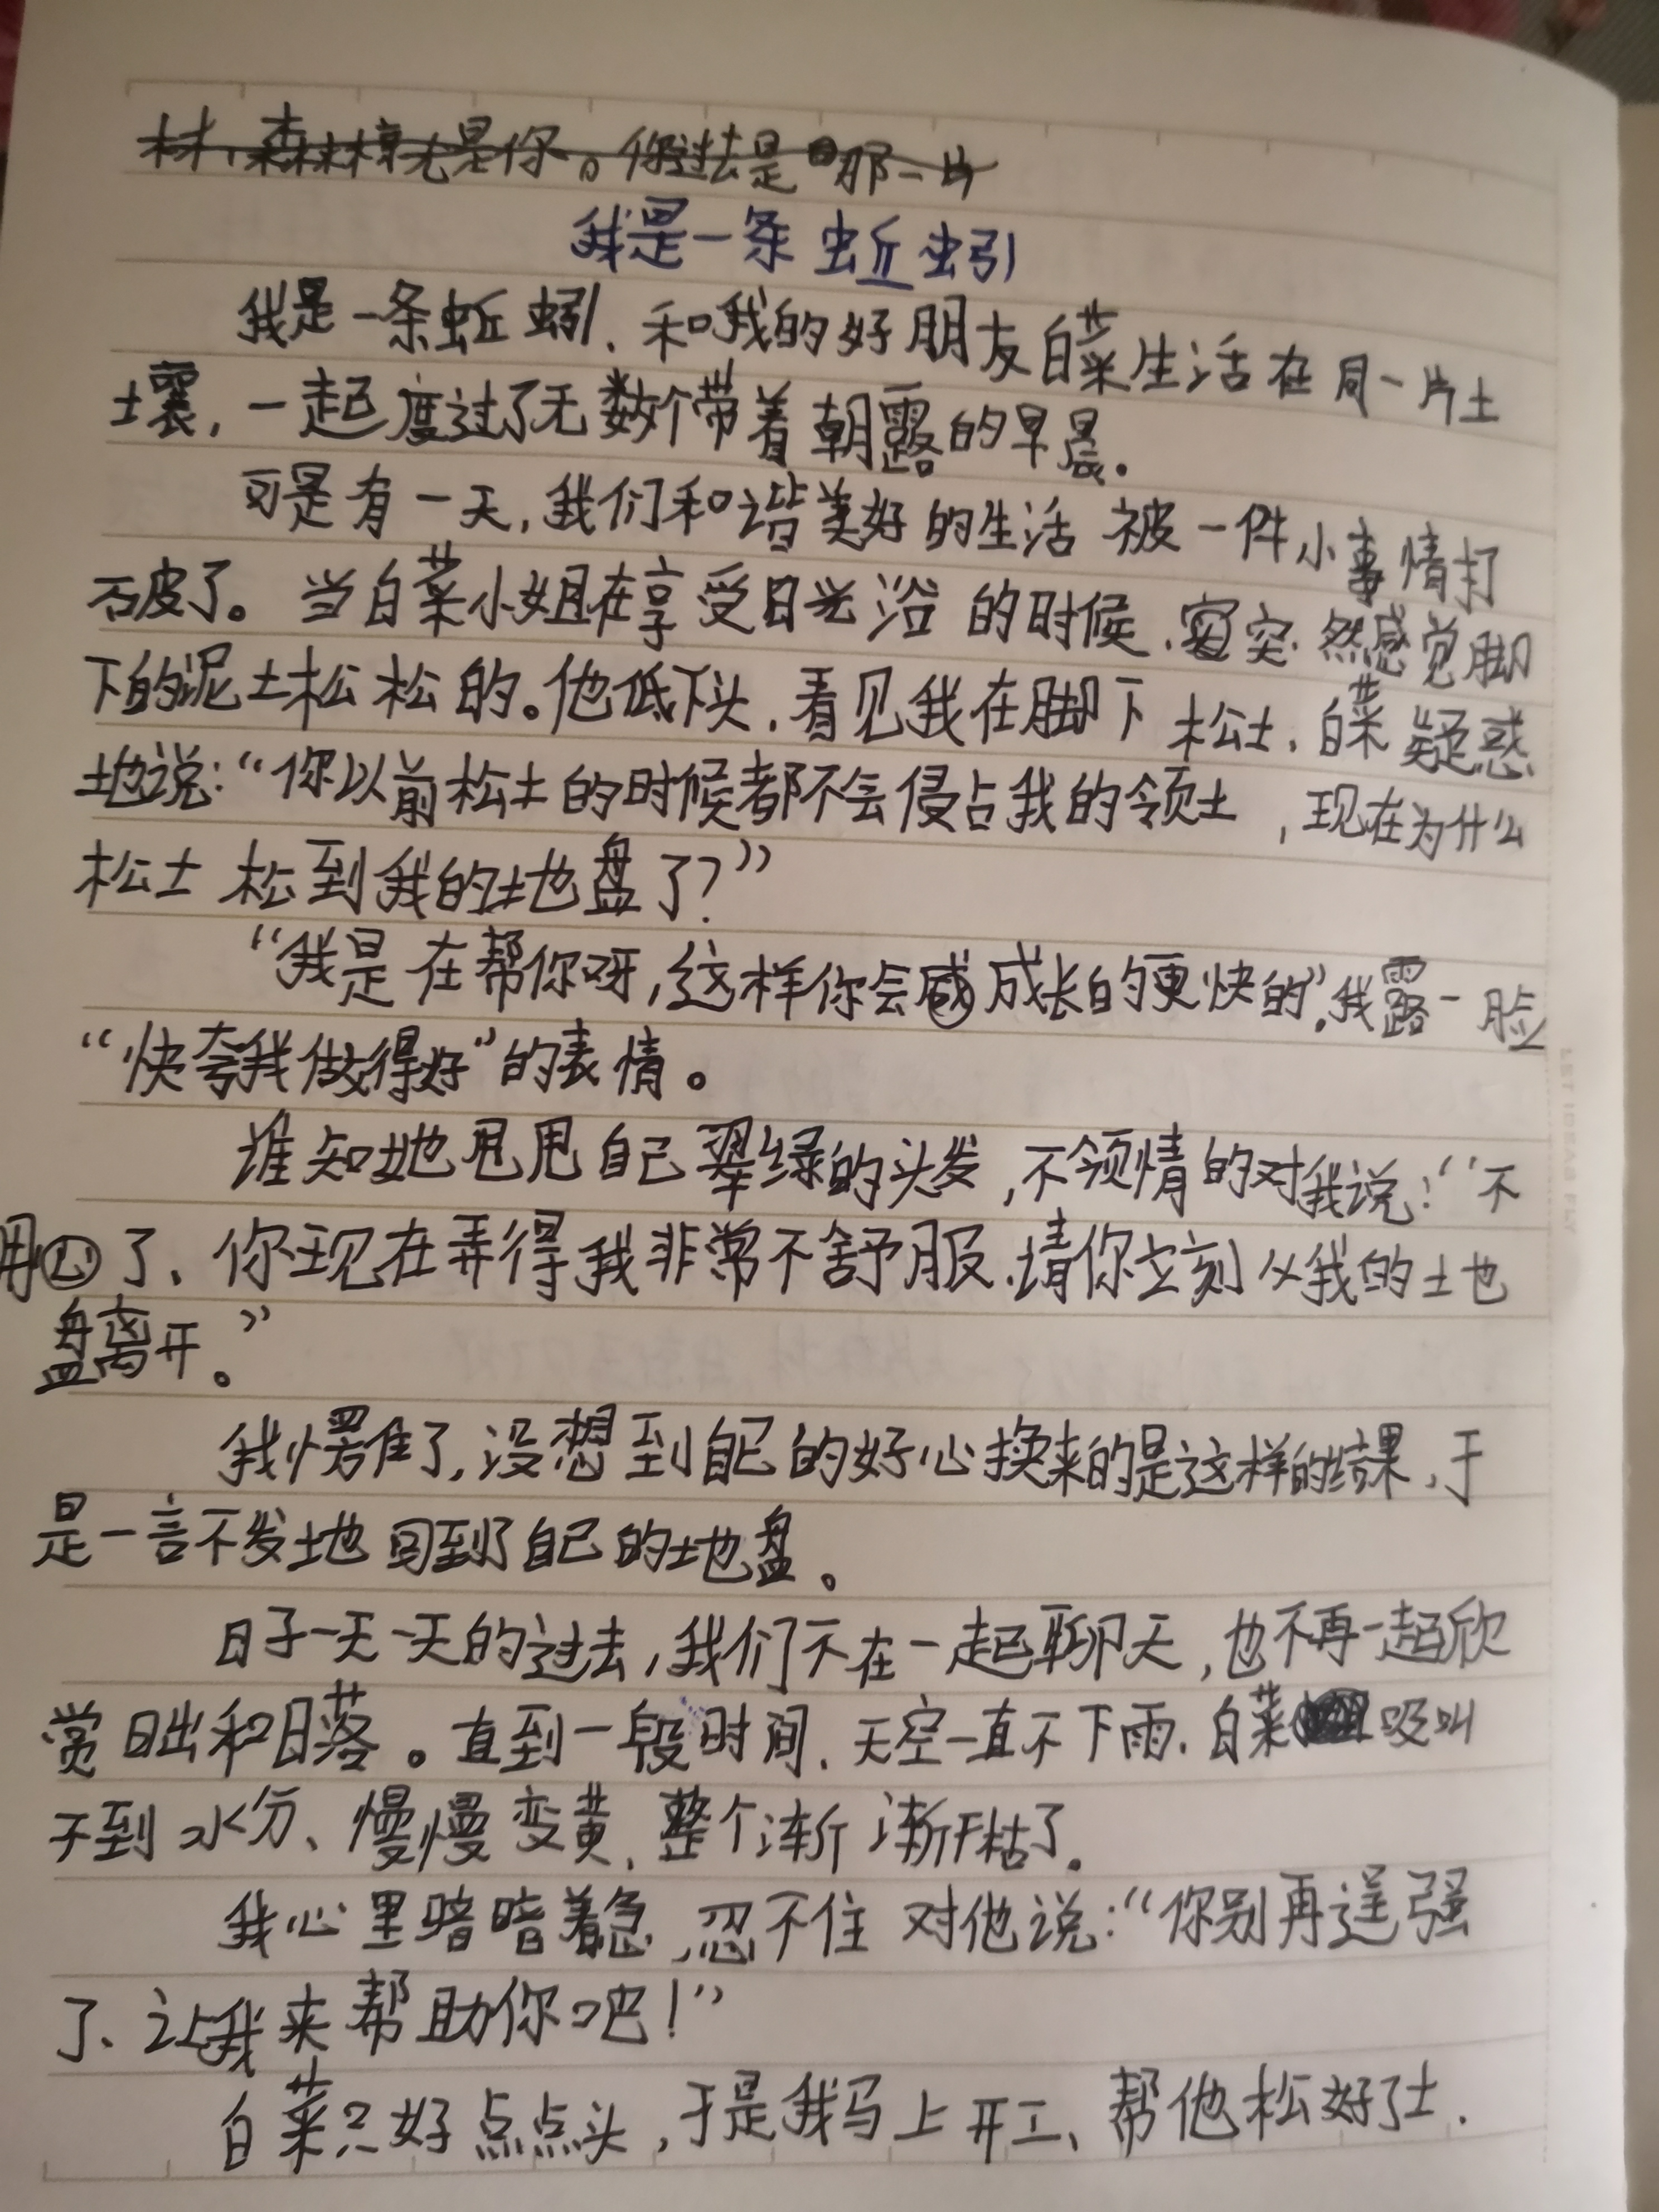 林,森林椋尤是你。你过去是那一片
我是一条蚯蚓
我是一条蚯蚓,和我的好朋友白菜生活在同一片土
壤,一起度过了无数个带着朝露的早晨。
可是有一天,我们和谐美好的生活被一件小事情打
破了。当白菜小姐在享受日光浴的时候,突然感觉脚
下的泥土松松的。他低下头,看见我在脚下松土,白菜疑惑
地说:“你以前松土的时候都不会侵占我的领土,现在为什么
松土松到我的地盘了?”
“我是在帮你呀,这样你会成长的更快的”,我露一脸
“快夸我做得好”的表情。
谁知她甩甩自己翠绿的头发,不领情的对我说:“不
用了、你现在弄得我非常不舒服,请你立刻从我的土地
盘离开。”
我愣住了,没想到自己的好心换来的是这样的结果,于
是一言不发地回到了自己的地盘。
日子一天一天的过去,我们不在一起聊天,也不再一起欣
赏日出和日落。直到一段时间,天空一直不下雨,白菜吸叫
不到水分、慢慢变黄,整个渐渐干枯了。
我心里暗暗着急,忍不住对他说:“你别再逞强
了、让我来帮助你吧!”
白菜只好点点头,于是我马上开工、帮他松好了土.